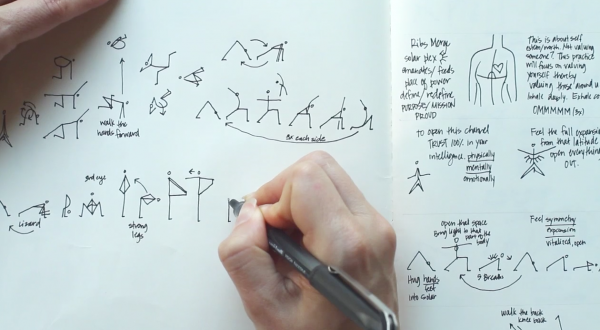 walk the
hands forward
3x each side
3rd eye
Lizard
strong
legs
Ribs. Merge
solar plex
emanates/feeds
place of power
define/redefine
PURPOSE/MISSION
PROUD
This is about self
esteem/worth. Not valuing
someone? This practice
will focus on valuing
yourself thereby
valuing those around u
Inhale deeply. Exhale
OMMMMMM (3x)
to open this channel
TRUST 100% in your
intelligence. physically
mentally
emotionally
Feel the full expansion
from that latitude
open everything
OUT.
open that space
Bring light in that
part of the
body
5 Breaths
Hug hands
feet
into solar
Feel symmetry
expansion
vitalized, open
walk the back
knee back